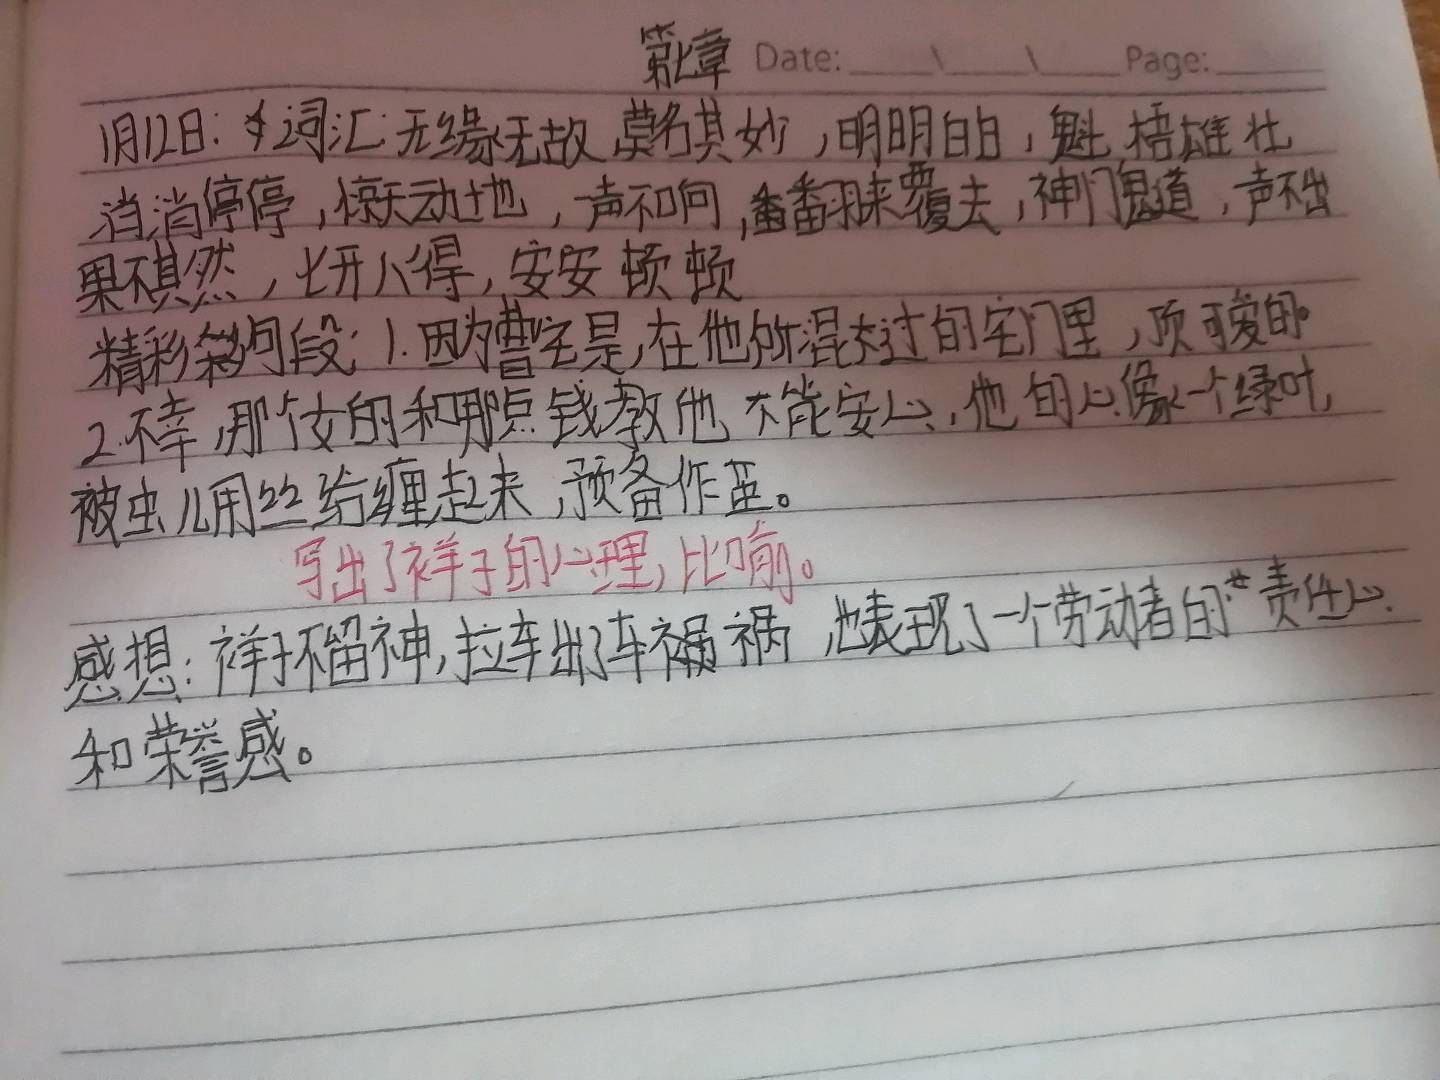 第七章 Date: Page:
1月12日:词汇:无缘无故,莫名其妙,明明白白,魁梧雄壮
消消停停,惊天动地,声不响,翻来覆去,神门鬼道,声不出
果不其然,七开八得,安安顿顿
精彩句段:1.因为曹宅是,在他所混过的宅门里,顶可爱的。
2.不幸,那个女的和那点钱教他不能安心,他的心像一个绿叶,
被虫儿用丝给缠起来,预备作茧。
写出了祥子的心理,比喻。
感想:祥子不留神,拉车出了车祸,也表现了一个劳动者的责任心
和荣誉感。